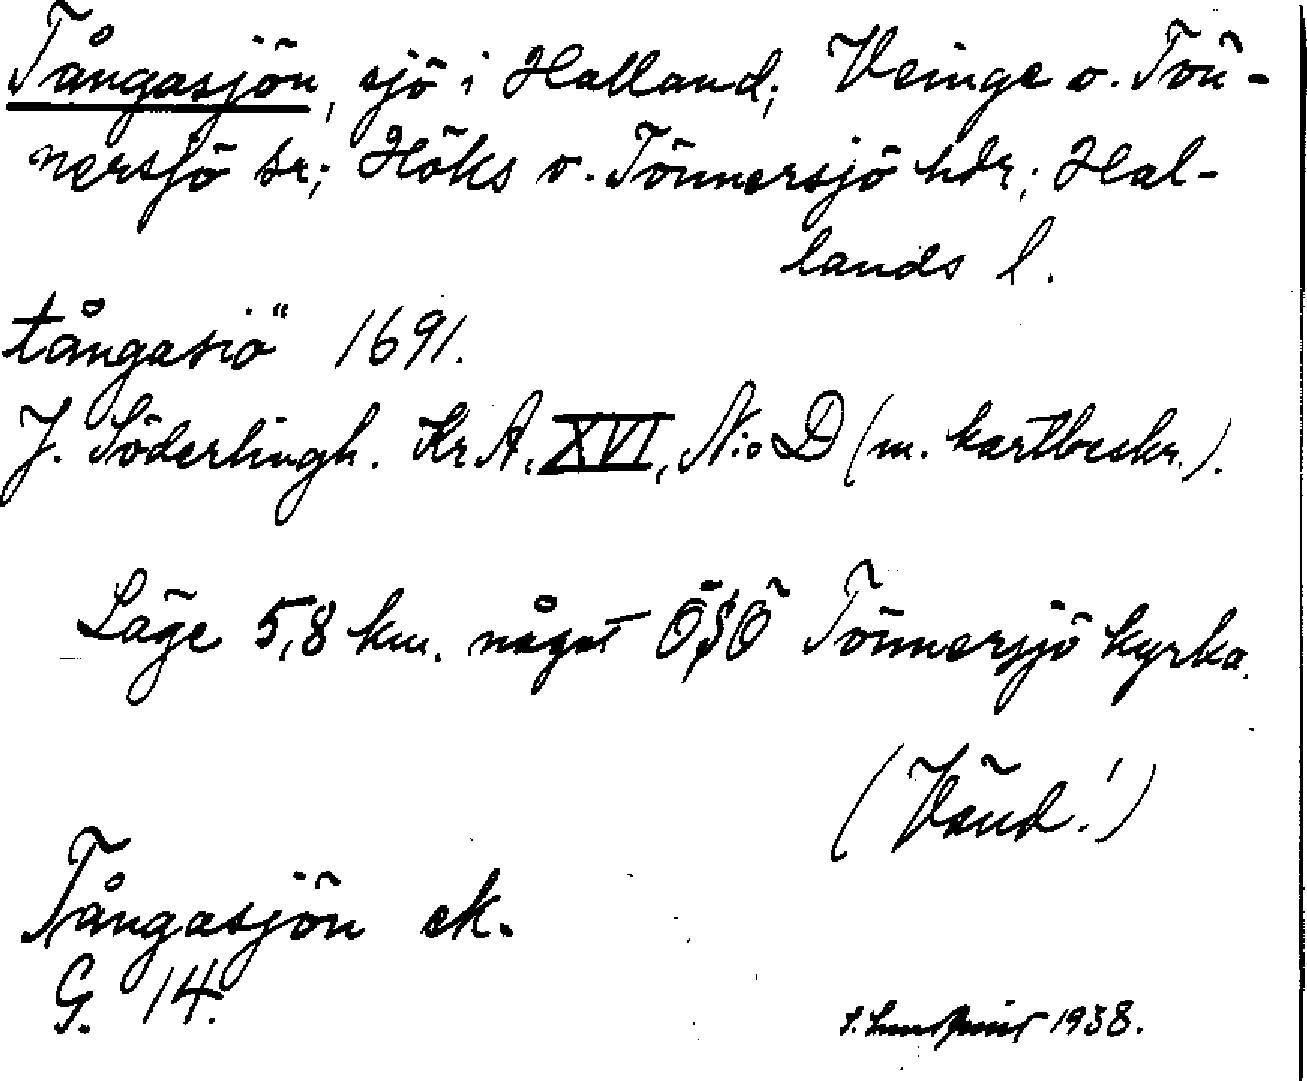 Tångasjön, sjö i Halland; Veinge o. Tön-
nersjö sr; Höks o. Tönnersjö hdr; Hal-
lands l.
tångasiö 1691.
J. Söderlingh. Kr A. XVI, N:o D (m. kartbeskr.).
Läge 5,8 km. något ÖSÖ Tönnersjö kyrka.
(Vänd!)
Tångasjön ek.
G. 14.
1938.